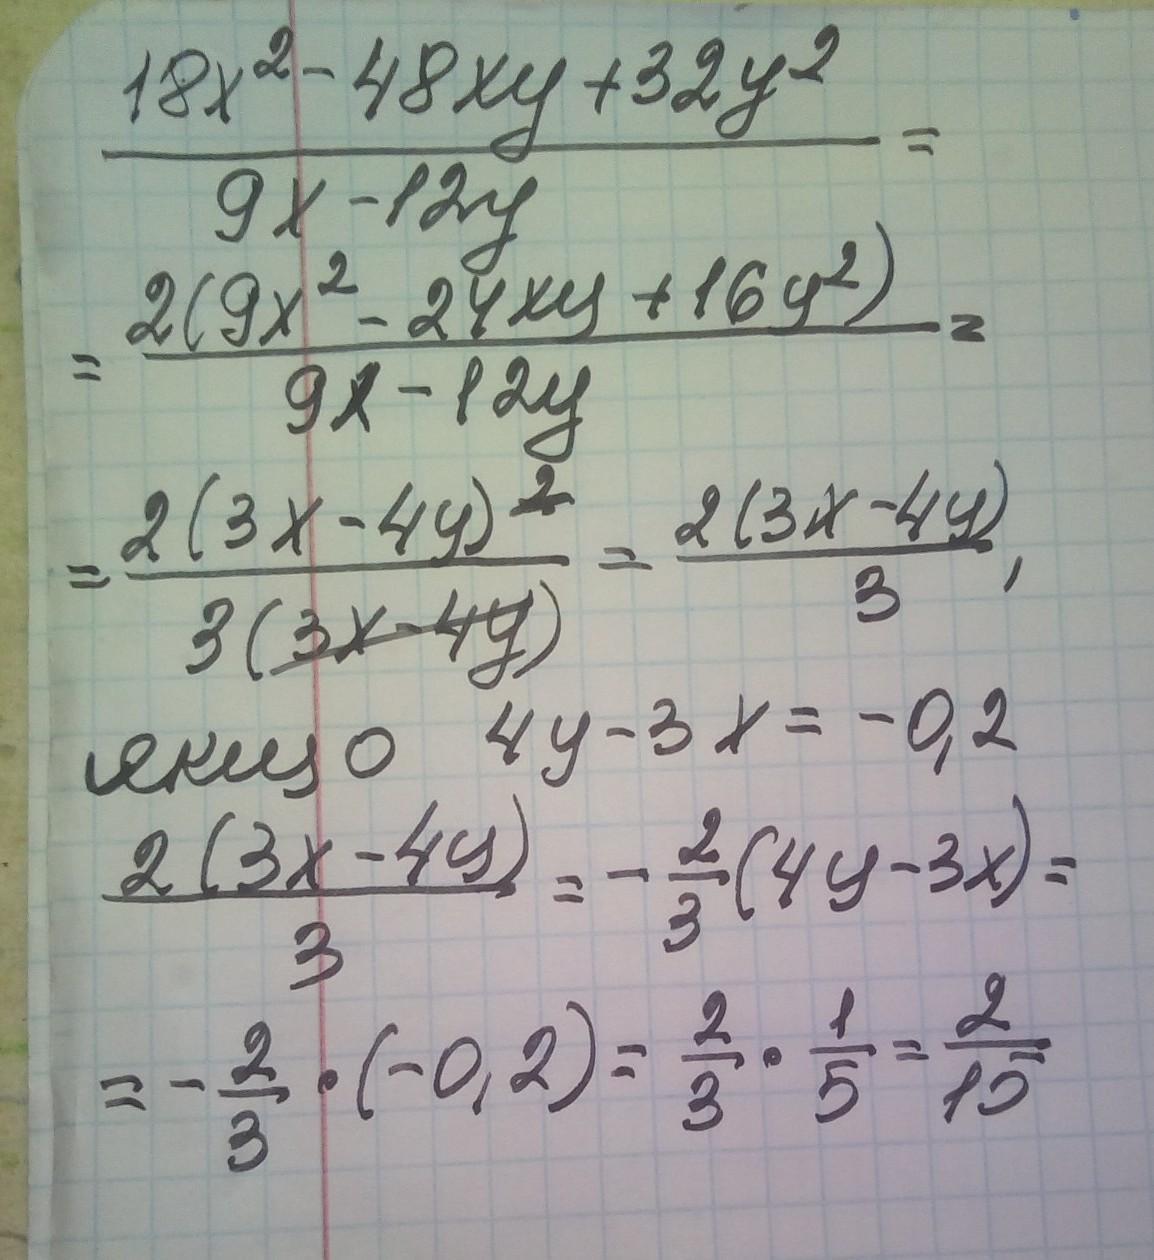 18x² - 48xy + 32y²
/ 9x - 12y =
= 2(9x² - 24xy + 16y²) / 9x - 12y =
= 2(3x - 4y)² / 3(3x - 4y) = 2(3x - 4y) / 3 ,
якщо 4y - 3x = -0,2
2(3x - 4y) / 3 = - 2/3 (4y - 3x) =
= - 2/3 · (-0,2) = 2/3 · 1/5 = 2/15